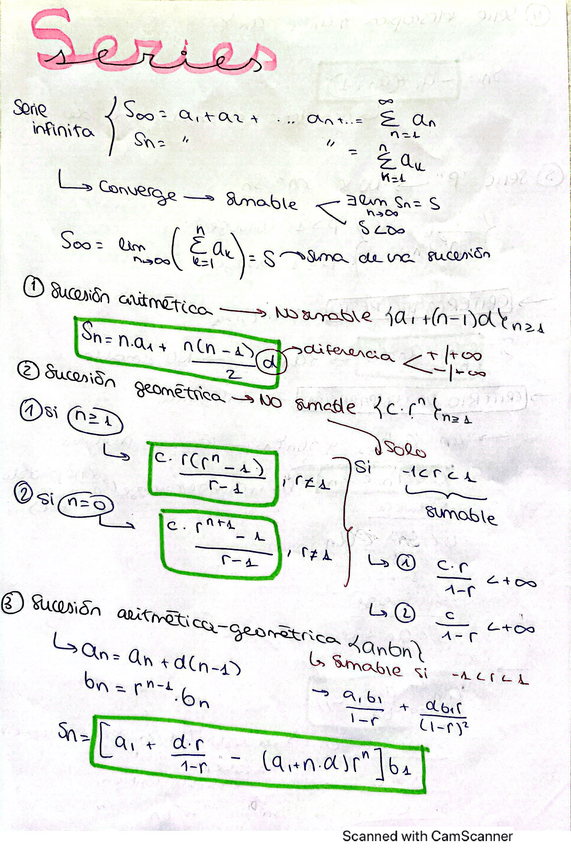 Series
series
Serie infinita { S∞ = a₁ + a₂ + ... an + ... = ∞ Σ n=1 an
Sn = " " = n Σ k=1 ak
↳ Converge → sumable < ∃ lim n→∞ Sn = S
S < ∞
S∞ = lim n→∞ ( n Σ k=1 ak ) = S → suma de una sucesión
① Sucesión aritmética → No sumable {a₁ + (n-1)d}n≥1
Sn = n.a₁ + n(n-1)/2 d → diferencia < + / +∞
- / -∞
② Sucesión geométrica → NO sumable {c·rⁿ}n≥1
① si n≥1
↳ c. r(rⁿ - 1)/r-1 , r≠1
Solo
si -1<r<1
sumable
② si n=0
c. rⁿ⁺¹ - 1/r-1 , r≠1
↳ ① c.r/1-r < +∞
↳ ② c/1-r < +∞
③ Sucesión aritmética-geométrica {anbn}
↳ an = an + d(n-1)
↳ sumable si -1<r<1
bn = rⁿ⁻¹·bn
→ a₁b₁/1-r + db₁r/(1-r)²
Sn = [a₁ + d.r/1-r - (a₁+n.d)rⁿ] b₁
Scanned with CamScanner